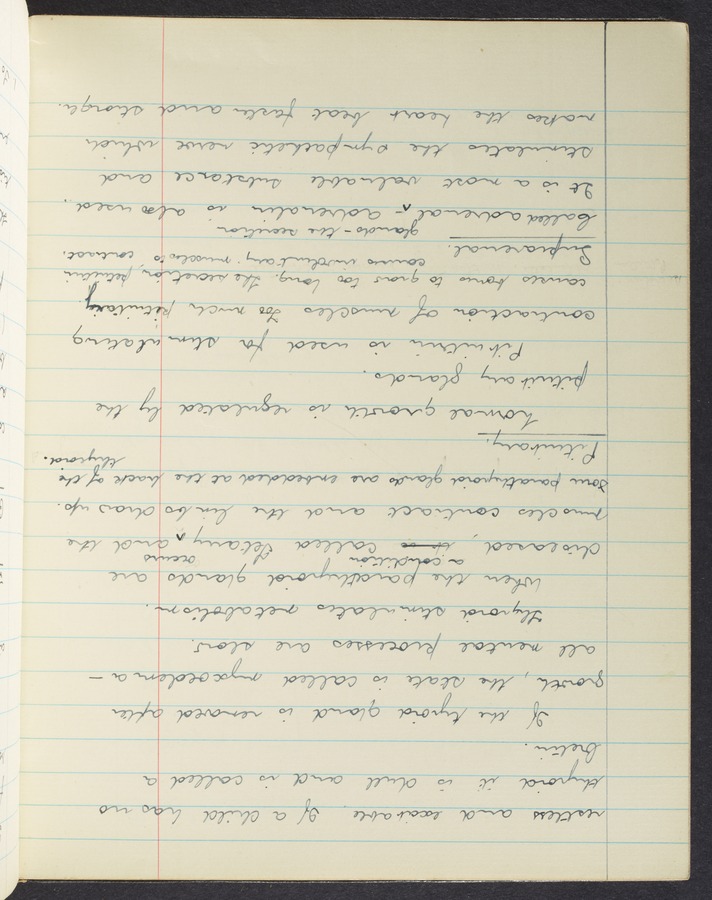 restless and excitable. If a child has no
thyroid it is dull and is called a
Cretin.
If the tyroid gland is removed after
growth, the state is called myxoedema –
all mental processes are slow.
Thyroid stimulates metabolism.
When the parathyroid glands are
a condition of occurs
diseased, called Tetany ^ and the
muscles contract and the limbs draws up.
Four parathyroid glands are embedded at the back of the
thyroid.
Pituitary.
Normal growth is regulated by the
pituitary glands.
Pituitrin is used for stimulating
contraction of muscles Too much pituitary
causes bones to grow too long. The secretion, pituitrin
causes involuntary muscles to contract.
Suprarenal.
glands - the secretion
Called adrenal ^ - adrenalin is also used.
It is a most valuable substance and
stimulates the sympathetic nerve which
makes the heart beat faster and stronger.